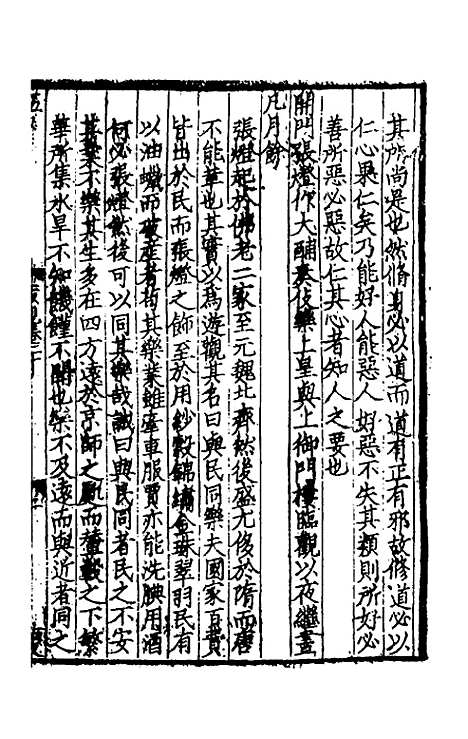 其所尚是也然脩身必以道而道有正有邪故修道必以
仁心果仁矣乃能好人能惡人好惡不失其類則所好必
善所惡必惡故仁其心者知人之要也
開門張燈作大酺奏伎樂上皇與上御門樓臨觀以夜繼晝
凡月餘
張燈起於佛老二家至元魏北齊然後盛尤侈於隋而唐
不能革也其實以爲遊觀其名曰與民同樂夫國家百費
皆出於民而張燈之飾至於用紗縠錦繡金珠翠羽民有
以油蠟而破産者哲其樂業雖臺車服賈亦能洗腆用酒
何必張燈然後可以同其樂哉誠曰與民同者民之不安
其業不樂其生多在四方遠於京師之夥而輦轂之下繁
華所集水旱不知饑饉不聞也樂不及遠而與近者同之